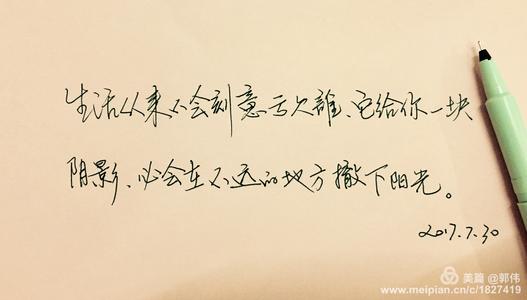 生活从来不会刻意亏欠誰、它给你一块
阴影、必会在不远的地方撒下阳光。
2017.7.30
美篇 @郭伟
www.meipian.cn/c/1827419